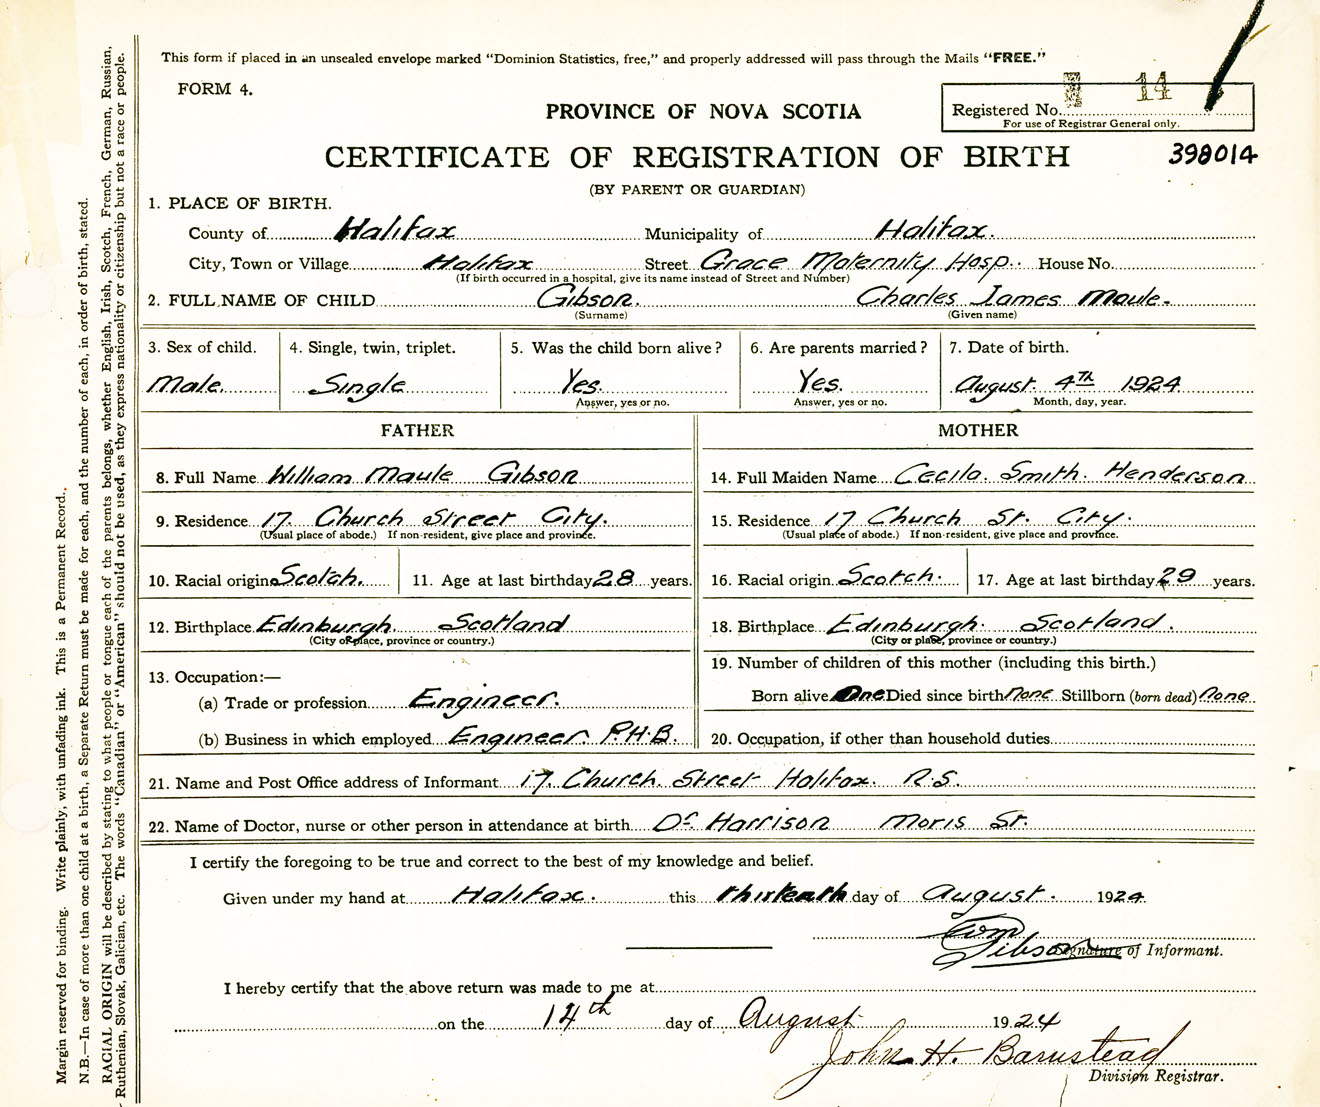 This form if placed in an unsealed envelope marked "Dominion Statistics, free," and properly addressed will pass through the Mails "FREE."
FORM 4.
14
Registered No.
For use of Registrar General only.
PROVINCE OF NOVA SCOTIA
CERTIFICATE OF REGISTRATION OF BIRTH
398014
(BY PARENT OR GUARDIAN)
1. PLACE OF BIRTH.
County of Halifax Municipality of Halifax.
City, Town or Village Halifax Street Grace Maternity Hosp.. House No.
(If birth occurred in a hospital, give its name instead of Street and Number)
2. FULL NAME OF CHILD Gibson. Charles James Maule.
(Surname) (Given name)
3. Sex of child. 4. Single, twin, triplet. 5. Was the child born alive? 6. Are parents married? 7. Date of birth.
Male. Single Yes. Yes. August 4TH 1924
Answer, yes or no. Answer, yes or no. Month, day, year.
FATHER MOTHER
8. Full Name William Maule Gibson 14. Full Maiden Name Cecila. Smith. Henderson
9. Residence 17. Church Street City. 15. Residence 17 Church St. City.
(Usual place of abode.) If non-resident, give place and province. (Usual place of abode.) If non-resident, give place and province.
10. Racial origin Scotch. 11. Age at last birthday 28 years. 16. Racial origin Scotch. 17. Age at last birthday 29 years.
12. Birthplace Edinburgh. Scotland 18. Birthplace Edinburgh. Scotland.
(City or place, province or country.) (City or place, province or country.)
13. Occupation:— 19. Number of children of this mother (including this birth.)
(a) Trade or profession Engineer. Born alive One Died since birth None Stillborn (born dead) None
(b) Business in which employed Engineer. P.H.B. 20. Occupation, if other than household duties
21. Name and Post Office address of Informant 17. Church. Street Halifax. R.S.
22. Name of Doctor, nurse or other person in attendance at birth Dr. Harrison Moris St.
I certify the foregoing to be true and correct to the best of my knowledge and belief.
Given under my hand at Halifax. this thirteenth day of August. 1924
Wm
Gibson
Signature of Informant.
I hereby certify that the above return was made to me at
on the 14th day of August 1924
John H. Barnstead
Division Registrar.
Margin reserved for binding. Write plainly, with unfading ink. This is a Permanent Record.
N.B.—In case of more than one child at a birth, a Separate Return must be made for each, and the number of each, in order of birth, stated.
RACIAL ORIGIN will be described by stating to what people or tongue each of the parents belongs, whether English, Irish, Scotch, French, German, Russian,
Ruthenian, Slovak, Galician, etc. The words "Canadian" or "American" should not be used, as they express nationality or citizenship but not a race or people.